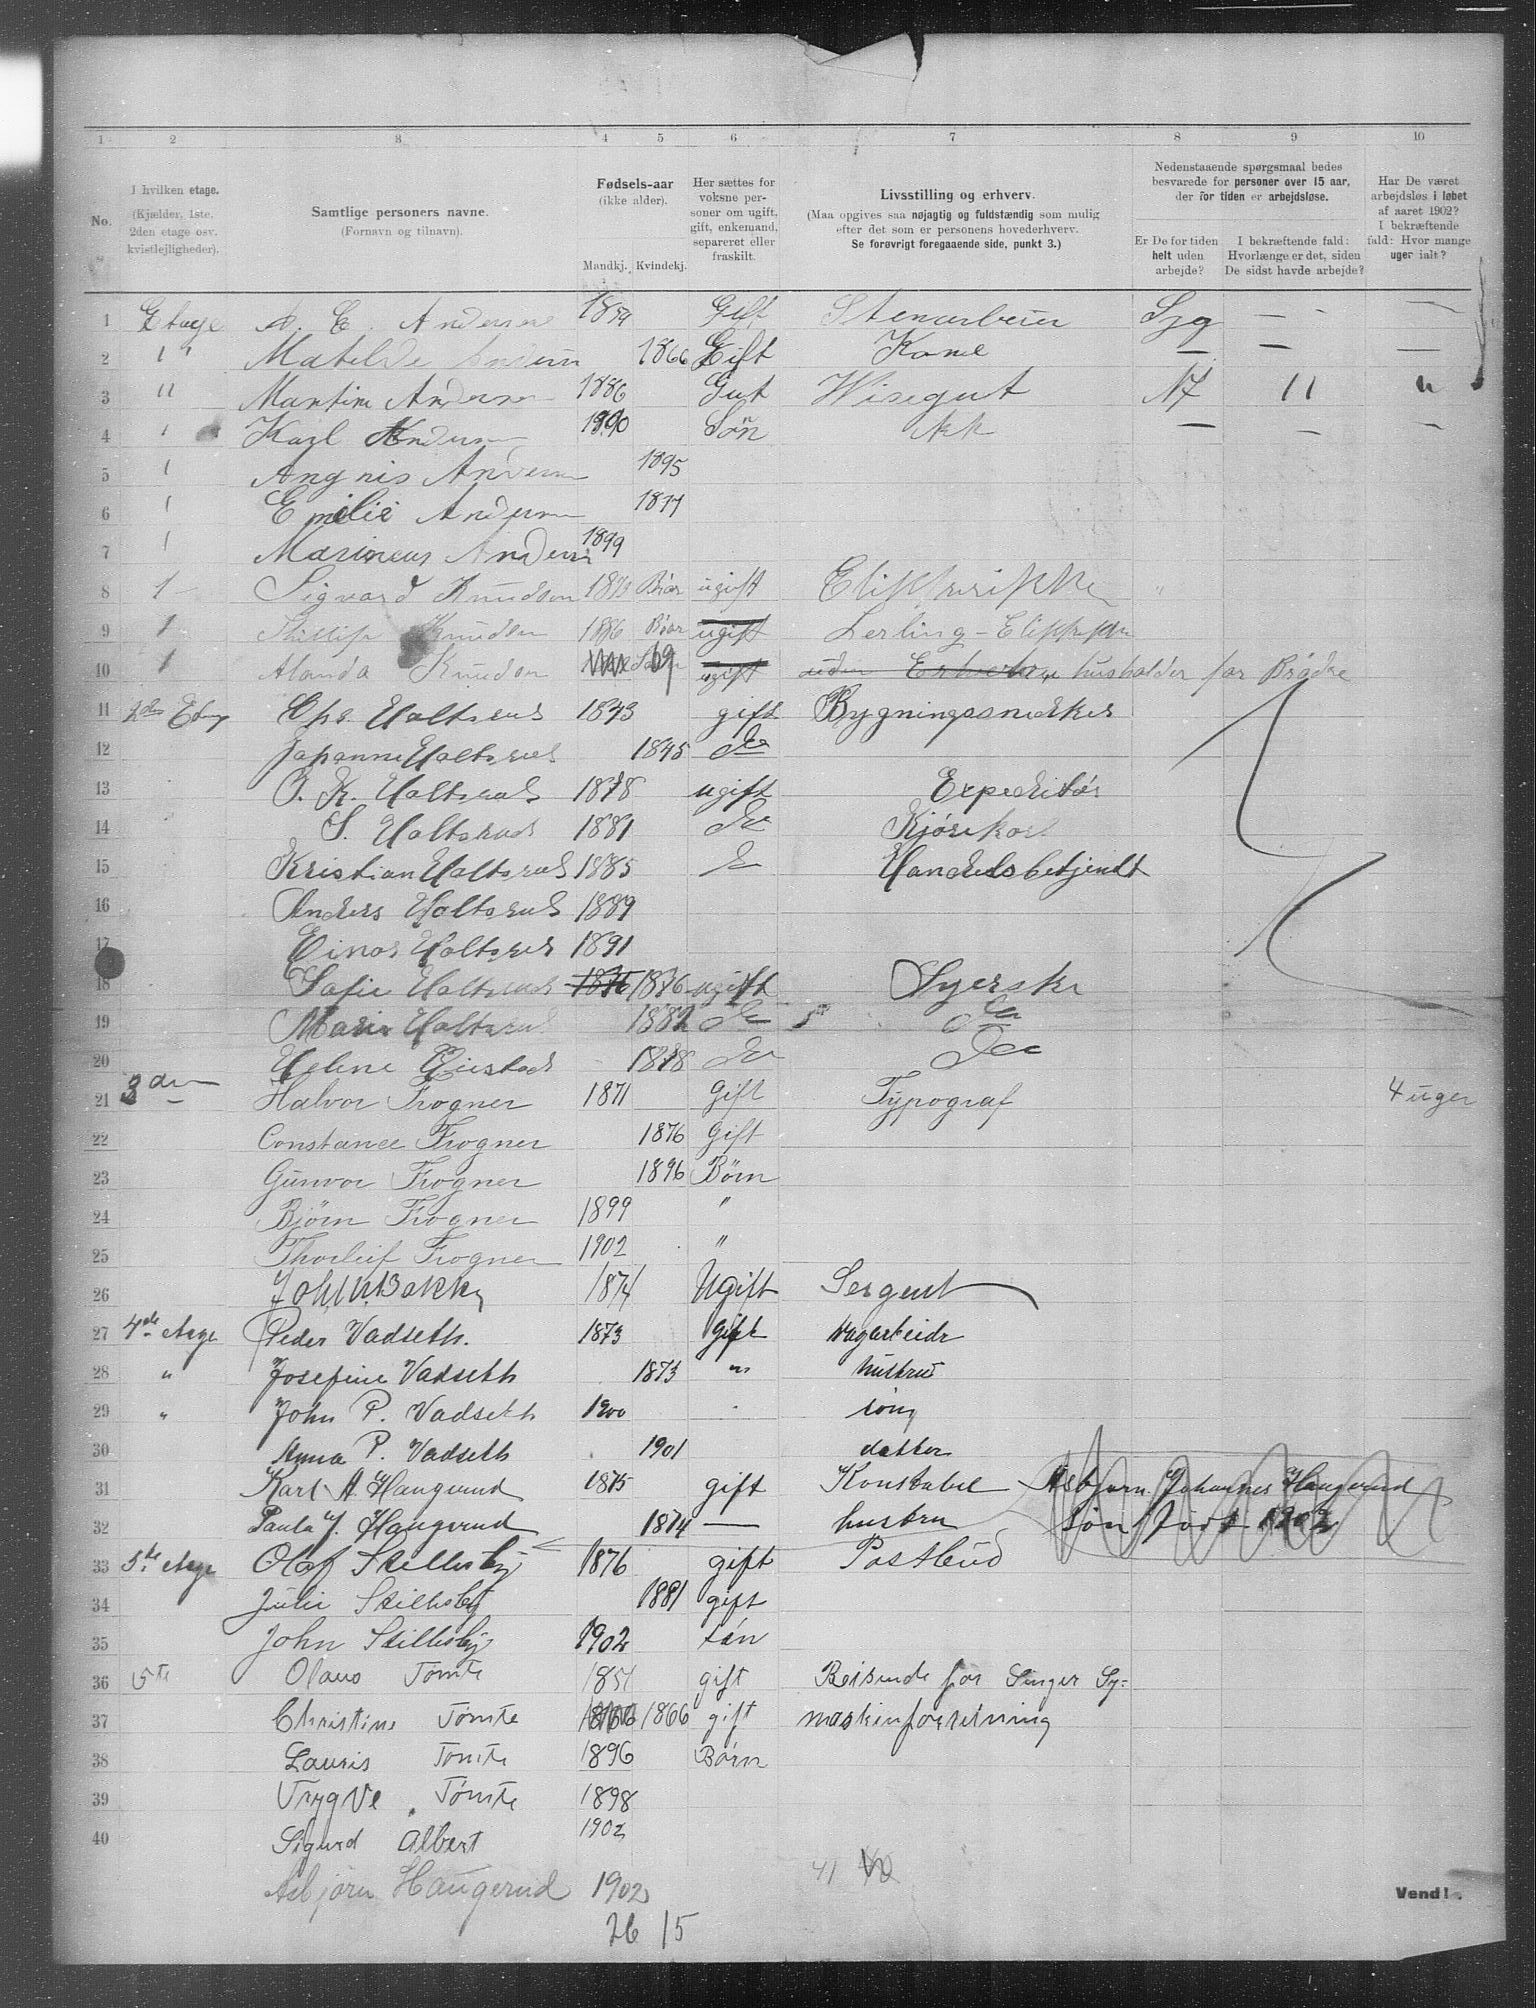 1 2 3 4 5 6 7 8 9 10
No.
I hvilken etage. (Kjælder, 1ste, 2den etage osv. kvistlejligheder).
Samtlige personers navne. (Fornavn og tilnavn).
Fødsels-aar (ikke alder). Mandkj. Kvindekj.
Her sættes for voksne personer om ugift, gift, enkemand, separeret eller fraskilt.
Livsstilling og erhverv. (Maa opgives saa nøjagtig og fuldstændig som mulig efter det som er personens hovederhverv. Se forøvrigt foregaaende side, punkt 3.)
Nedenstaaende spørgsmaal bedes besvarede for personer over 15 aar, der for tiden er arbejdsløse.
Er De for tiden helt uden arbejde?
I bekræftende fald: Hvorlænge er det, siden De sidst havde arbejde?
Har De været arbejdsløs i løbet af aaret 1902? I bekræftende fald: Hvor mange uger ialt?
1 Etage E. Andersen 1859 Gift Syg — —
2 1 " Matilde 1866 Gift Kone — — —
3 " Martin Andersen 1886 Gut Wisegut 17 11 "
4 Karl Andersen 1890 Søn — — —
5 Angnis Andersen 1895
6 Emilie Andersen
7 Marineus Andersen 1899
8 1 Sigvard Knudson ugift
9 1 Knudson ugift Lerling -
10 1 Alanda Knudson 69 ugift uden Erhverv husholder for Brødre
11 2den Etag Chr. Holtsrud 1843 gift Bygningssnedker
12 Johanne Holtsrud 1845 do
13 O. K. Holtsrud 1878 ugift Expeditør
14 S. Holtsrud 1881 do Kjørekar
15 Kristian Holtsrud 1885 Handelsbetjendt
16 Anders Holtsrud 1889
17 Einar Holtsrud 1891
18 Sofie Holtsrud 1876 1876 ugift Syerske
19 Marie Holtsrud 1882 do do
20 Helene 1878 do do
21 3die Halvor Frogner 1871 Gift Typograf 4 uger
22 Constance Frogner 1876 Gift
23 Gunvor Frogner 1896 Børn
24 Bjørn Frogner 1899 "
25 Thorleif Frogner 1902 "
26 Joh. Bakke 1874 Ugift Sergent
27 4de etage Peder Vadseth. 1873 gift
28 " Josefine Vadseth 1873 " hustru
29 " John P. Vadseth 1900 sønn
30 Anna P. Vadseth 1901 datter
31 Karl A. Haugerud 1875 gift Konstabel Asbjørn Johannes Haugerud
32 Paula J. Haugerud 1874 — hustru søn født 1902
33 5te etage Olof Skillesby 1876 gift Postbud
34 Julie Skillesby 1881 gift
35 John Skillesby 1902 søn
36 5te Olaus Tømte 1851 gift Reisende for Singer Sy-
37 Christine Tømte 1866 1866 gift maskinforretning
38 Lauris Tømte 1896 Børn
39 Trygve Tømte 1898
40 Sigurd Albert 1902
Asbjørn Haugerud 1902 41 40
26 15
Vend!